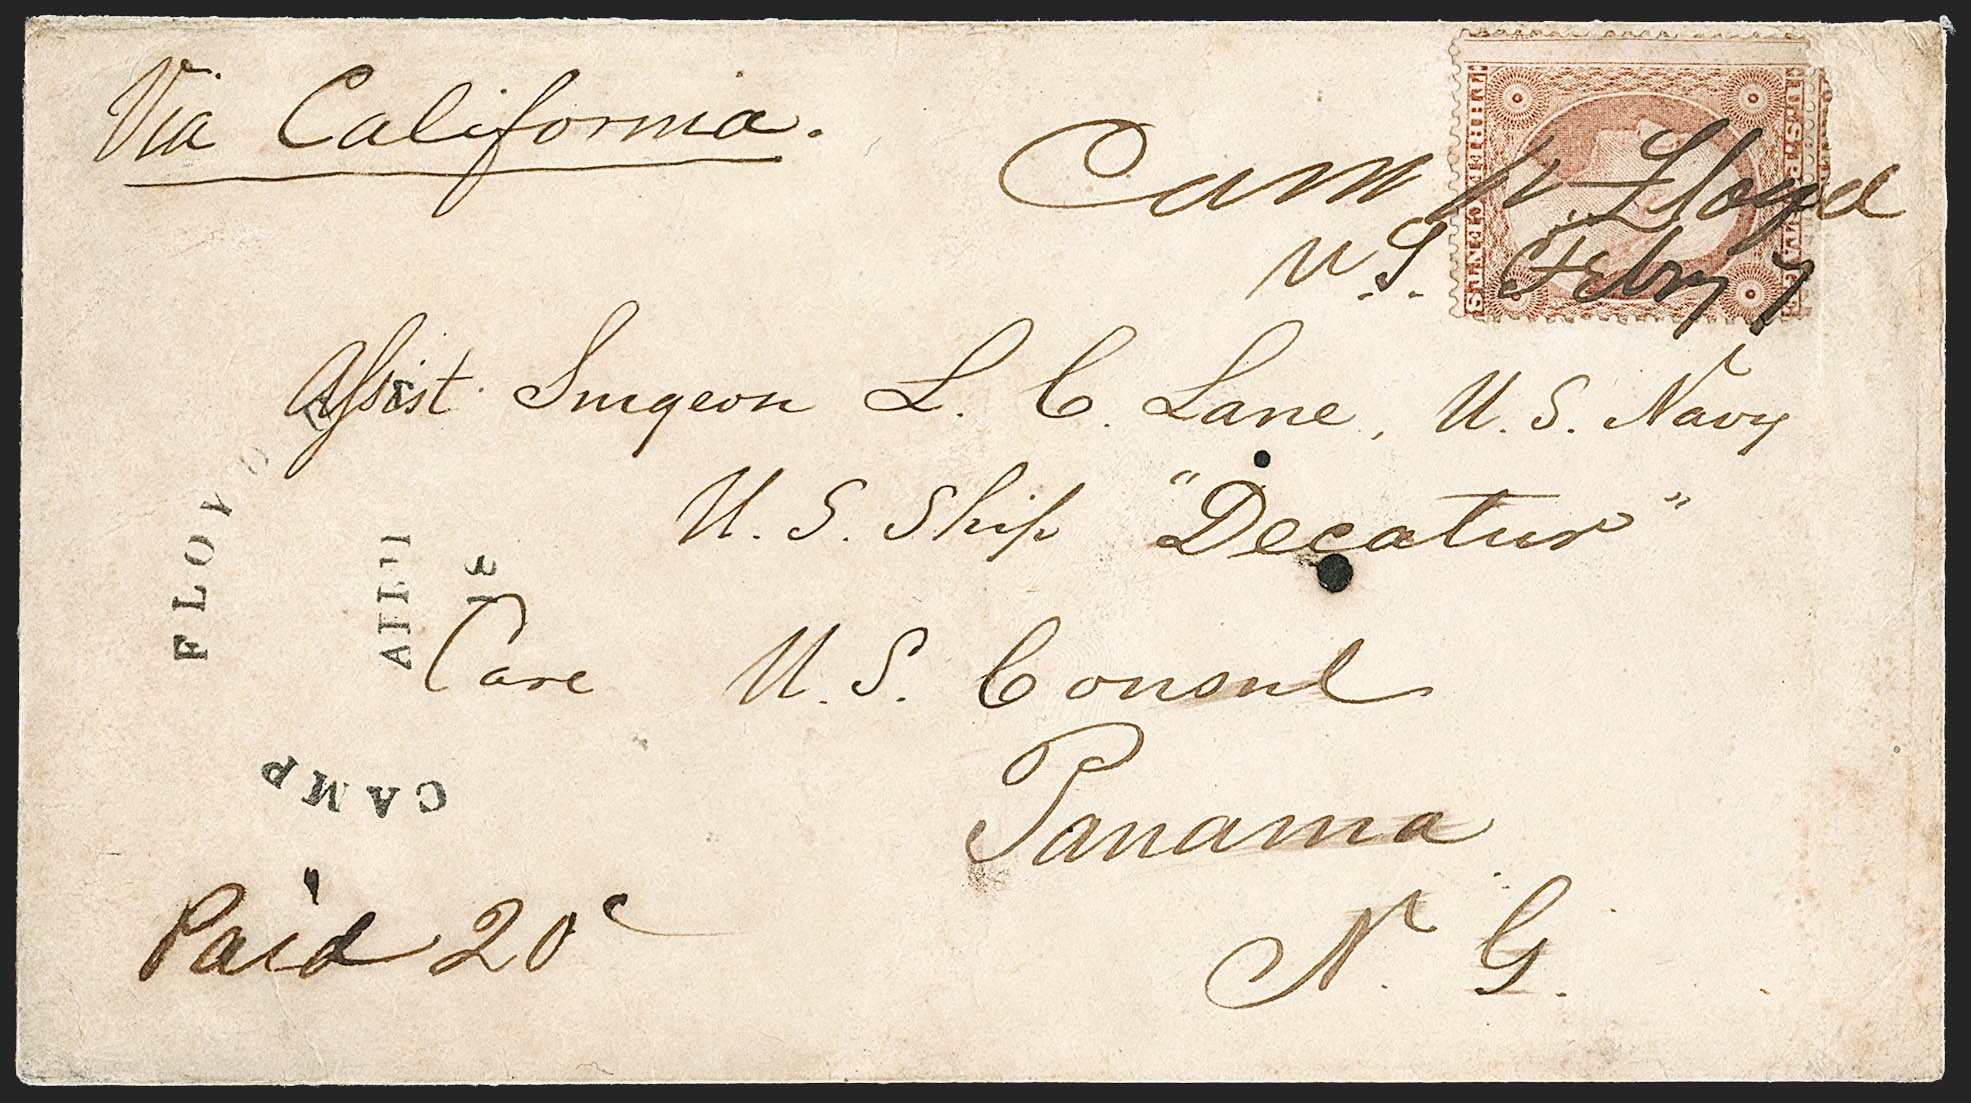 Via California.
Camp Floyd
U.S. Febry 7
Assist. Surgeon L. C. Lane, U. S. Navy
U. S. Ship "Decatur"
Care U. S. Consul
Panama
N. G.
Paid 20c
CAMP FLOYD
U.S. POSTAGE
THREE CENTS